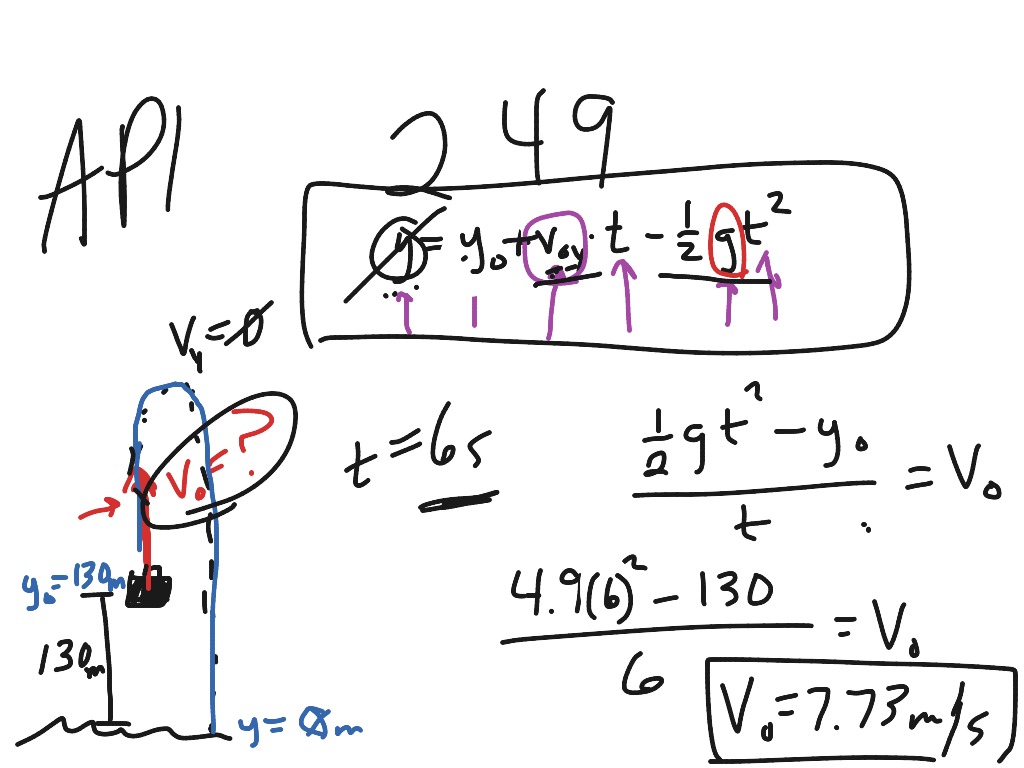 AP1
2 49
y = y₀ + v₀y · t - ½ g t²
Vy = 0
V₀ = ?
t = 6s
½ g t² - y₀
t
= V₀
y₀ = 130m
130m
4.9(6)² - 130
6
= V₀
y = 0m
V₀ = 7.73 m/s